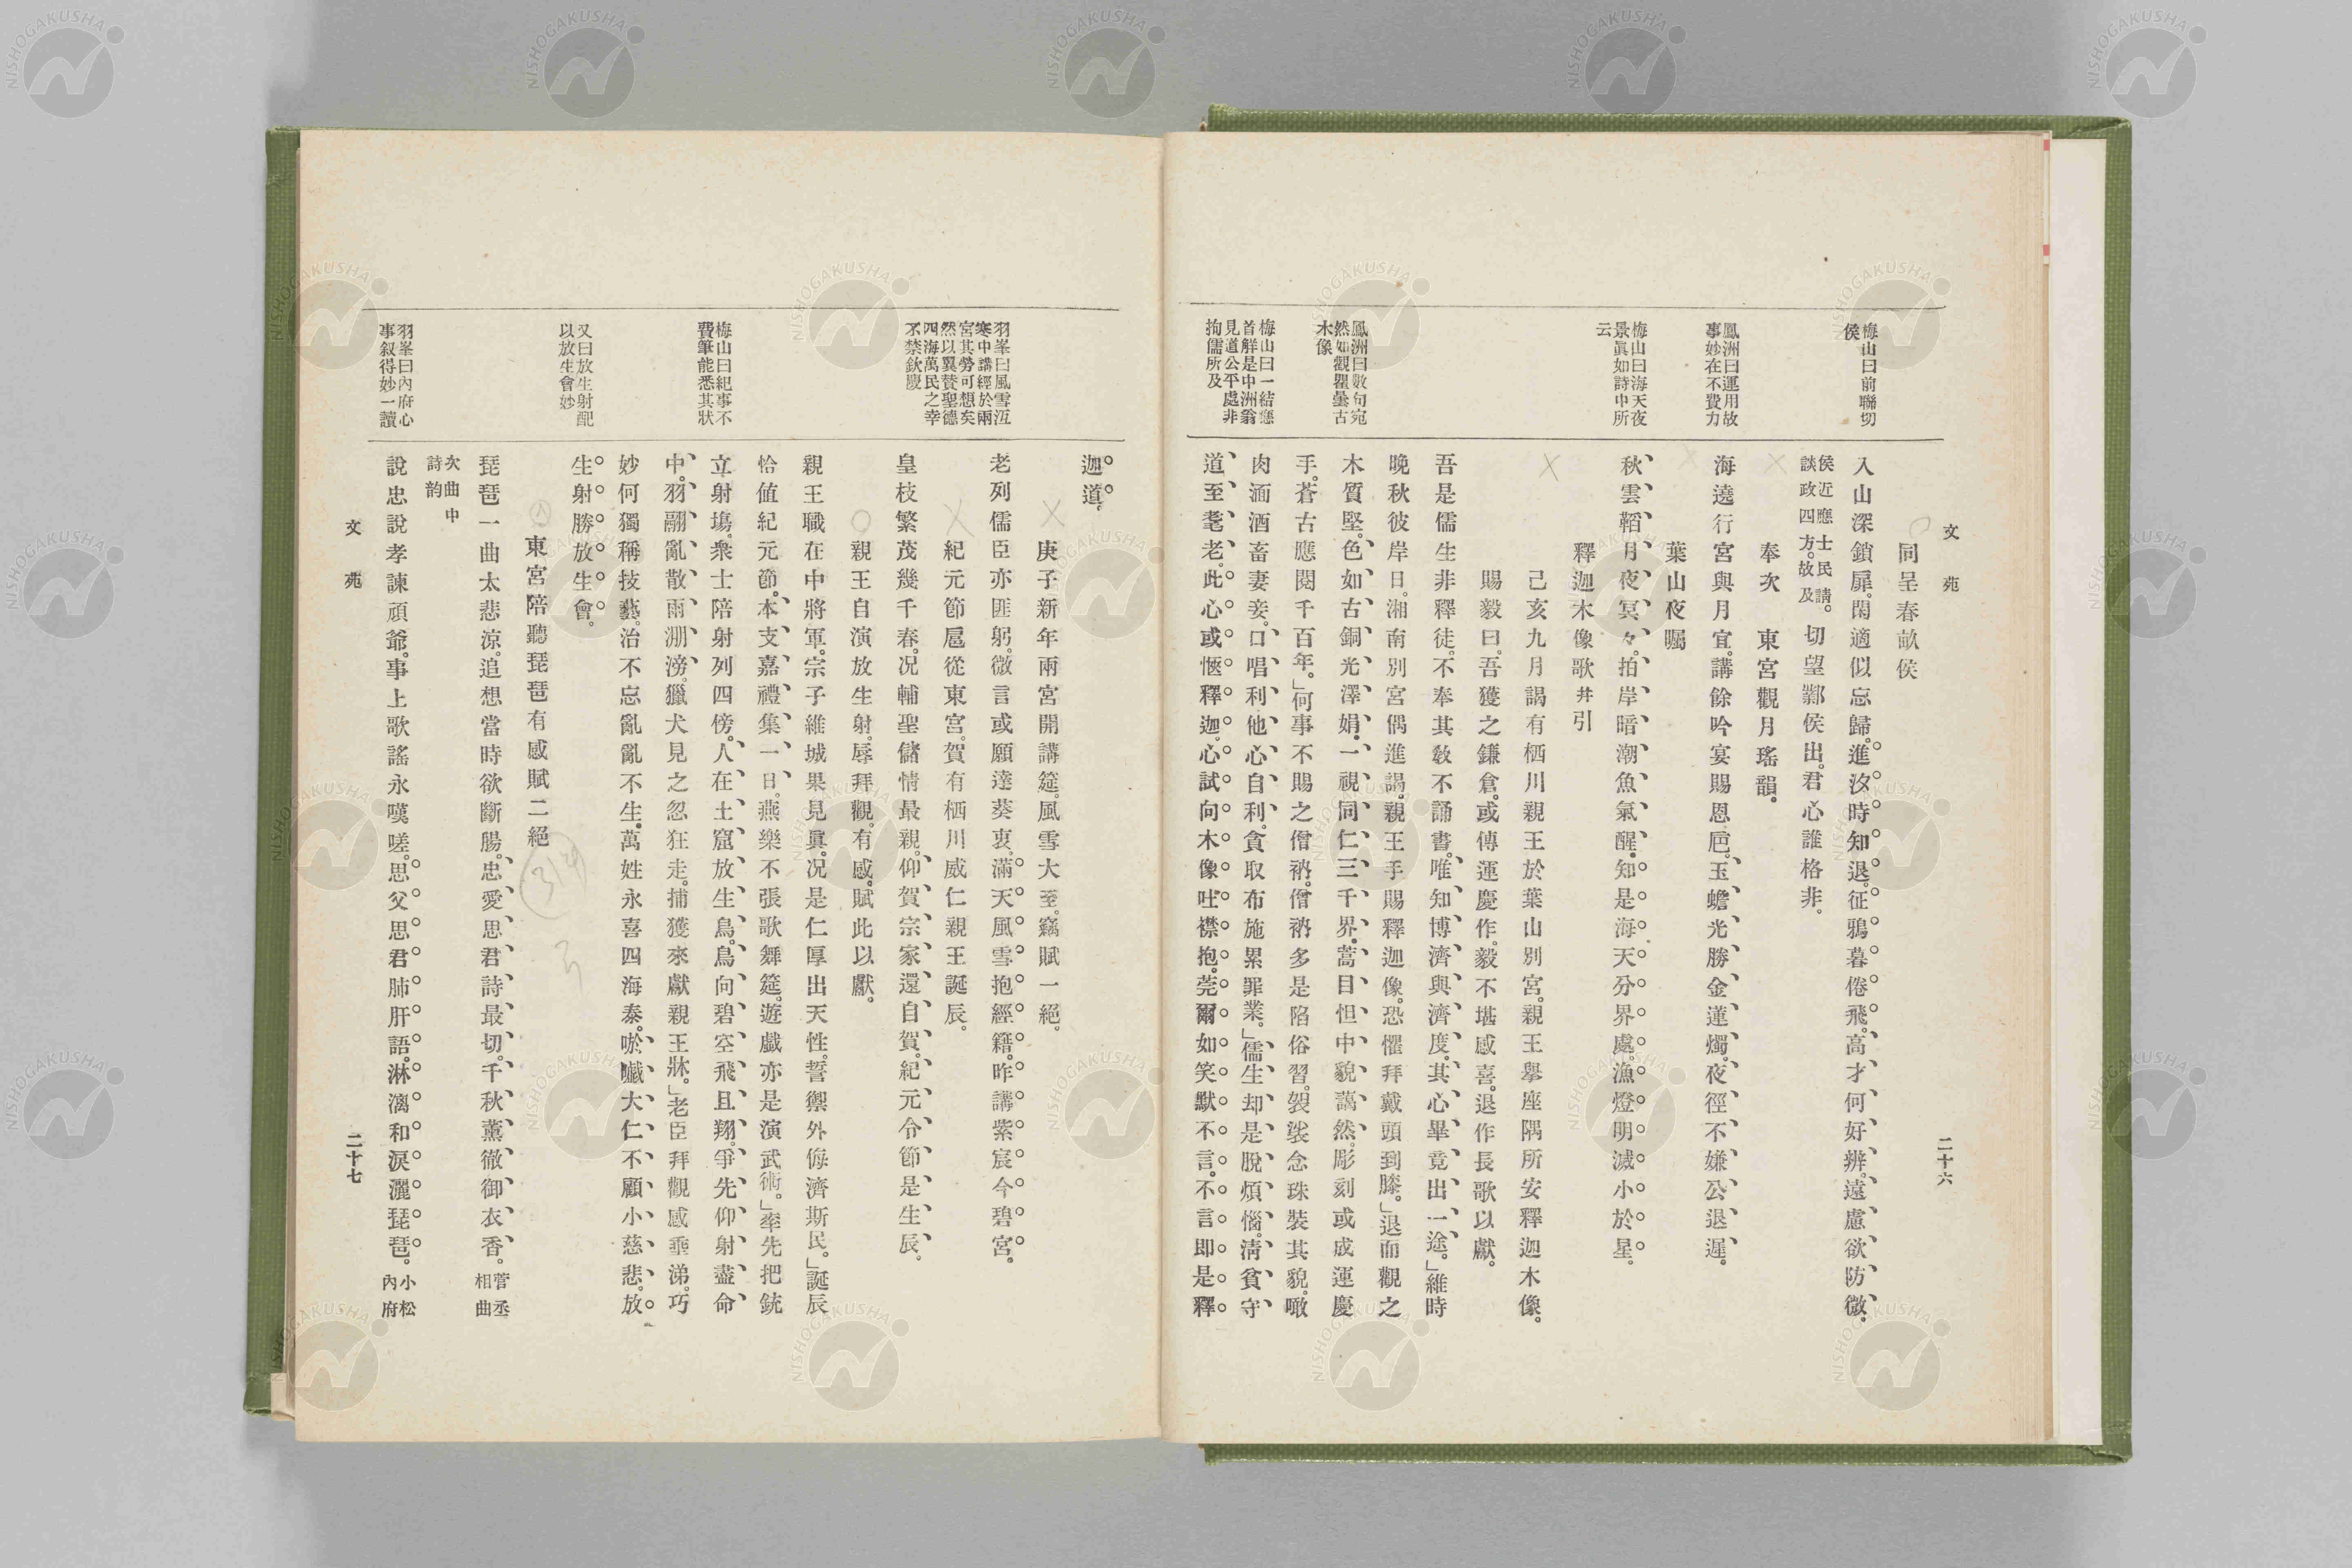 文苑
二十六
梅山曰前聯切
侯
鳳洲曰運用故
事妙在不費力
梅山曰海天夜
景眞如詩中所
云
鳳洲曰數句宛
然如觀瞿曇古
木像
梅山曰一結應
首解是中洲翁
見道公平處非
拘儒所及
同呈春畝侯
入山深鎖扉。閑適似忘歸。進汐時知退。征鴉暮倦飛。高才何好辨。遠慮欲防微。
侯近應士民請。
談政四方。故及
切望酇侯出。君心誰格非。
奉次　東宮觀月瑤韻。
海遶行宮與月宜。講餘吟宴賜恩巵。玉蟾光勝金蓮燭。夜徑不嫌公退遲。
葉山夜矚
秋雲韜月夜冥々。拍岸暗潮魚氣醒。知是海天分界處。漁燈明滅小於星。
釋迦木像歌并引
己亥九月謁有栖川親王於葉山別宮。親王擧座隅所安釋迦木像。
賜毅曰。吾獲之鎌倉。或傳運慶作。毅不堪感喜。退作長歌以獻。
吾是儒生非釋徒。不奉其敎不誦書。唯知博濟與濟度。其心畢竟出一途。」維時
晩秋彼岸日。湘南別宮偶進謁。親王手賜釋迦像。恐懼拜戴頭到膝。」退而觀之
木質堅。色如古銅光澤娟。一視同仁三千界。蒿目怛中貌藹然。彫刻或成運慶
手。蒼古應閱千百年。」何事不賜之僧衲。僧衲多是陷俗習。袈裟念珠裝其貌。噉
肉湎酒畜妻妾。口唱利他心自利。貪取布施累罪業。」儒生却是脫煩惱。淸貧守
道至耄老。此心或愜釋迦心。試向木像吐襟抱。莞爾如笑默不言。不言即是釋
羽峯曰風雪沍
寒中講經於兩
宮其勞可想矣
然以翼賛聖德
四海萬民之幸
不禁欽慶
梅山曰紀事不
費筆能悉其狀
又曰放生射配
以放生會妙
羽峯曰內府心
事叙得妙一讀
迦道。
庚子新年兩宮開講筵。風雪大至。竊賦一絕。
老列儒臣亦匪躬。微言或願達葵衷。滿天風雪抱經籍。昨講紫宸今碧宮。
紀元節扈從東宮。賀有栖川威仁親王誕辰。
皇枝繁茂幾千春。况輔聖儲情最親。仰賀宗家還自賀。紀元令節是生辰。
親王自演放生射。辱拜觀。有感。賦此以獻。
親王職在中將軍。宗子維城果見眞。况是仁厚出天性。誓禦外侮濟斯民。」誕辰
恰値紀元節。本支嘉禮集一日。燕樂不張歌舞筵。遊戲亦是演武術。」率先把銃
立射塲。衆士陪射列四傍。人在土窟放生鳥。鳥向碧空飛且翔。爭先仰射盡命
中。羽翮亂散雨淜滂。獵犬見之忽狂走。捕獲來獻親王牀。」老臣拜觀感垂涕。巧
妙何獨稱技藝。治不忘亂亂不生。萬姓永喜四海泰。唹戱大仁不顧小慈悲。放
生射勝放生會。
東宮陪聽琵琶有感賦二絕
琵琶一曲太悲凉。追想當時欲斷腸。忠愛思君詩最切。千秋薰徹御衣香。
菅丞
相曲
次曲中
詩韵
說忠說孝諫頑爺。事上歌謠永嘆嗟。思父思君肺肝語。淋漓和淚灑琵琶。
小松
內府
文苑
二十七
NISHOGAKUSHA